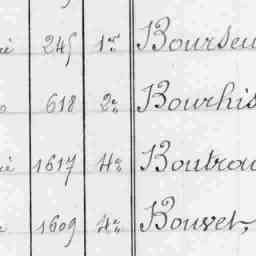 245 1re Bourseu
618 2e Bourhis
1617 4e Boutrou
1609 4e Bouvet,